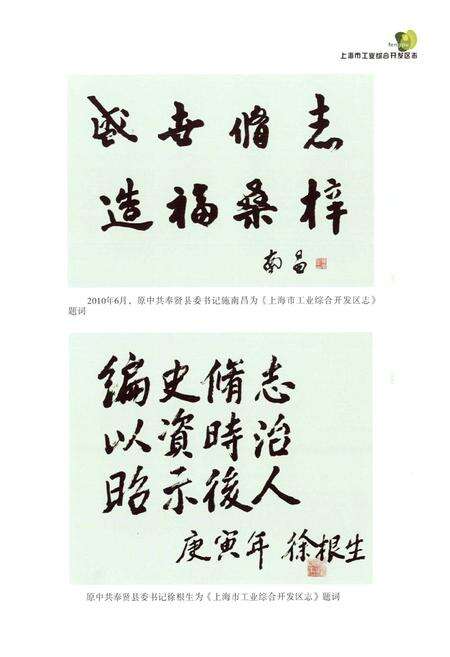 上海市工业综合开发区志
盛世脩志
造福桑梓
南昌
2010年6月，原中共奉贤县委书记施南昌为《上海市工业综合开发区志》
题词
编史脩志
以資時治
昭示後人
庚寅年 徐根生
原中共奉贤县委书记徐根生为《上海市工业综合开发区志》题词